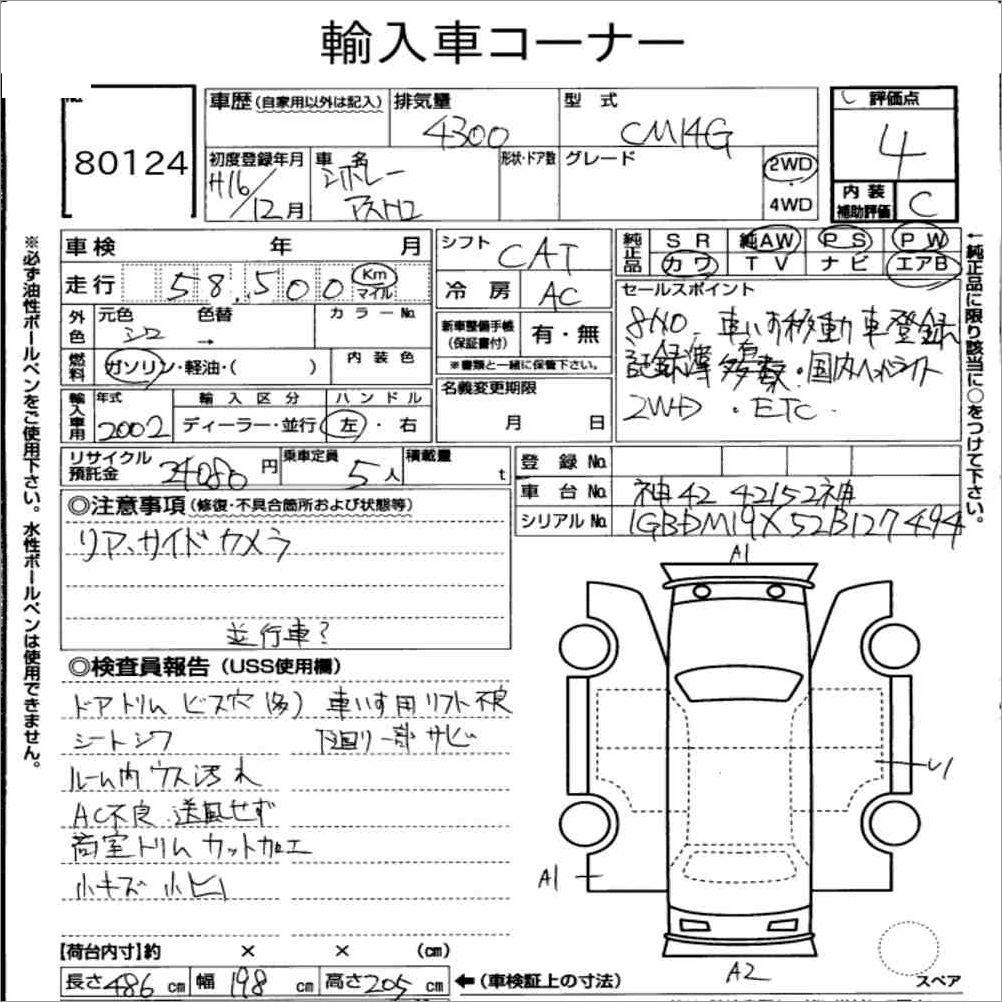 輸入車コーナー
80124
車歴(自家用以外は記入) 排気量 4300 型式 CM14G
評価点 4
内装補助評価 C
初度登録年月 H16/12月 車名 シボレー アストロ 形状・ドア数 グレード 2WD 4WD
車検 年 月
走行 58,500 Km マイル
外色 元色 シロ 色替 → カラーNo.
燃料 ガソリン・軽油・( ) 内装色
輸入車用 年式 2002 輸入区分 ディーラー・並行 ハンドル 左・右
シフト CAT
冷房 AC
新車整備手帳(保証書付) 有・無
※書類と一緒に保管下さい。
名義変更期限
月 日
純正品 SR 純AW PS PW
カワ TV ナビ エアB
セールスポイント
8No. 車いす移動車登録
記録簿多数・国内
2WD・ETC
リサイクル預託金 34080円 乗車定員 5人 積載量 t
登録No.
車台No. 神42 42152神
シリアルNo. 1GBDM19X52B127494
◎注意事項(修復・不具合箇所および状態等)
リア、サイドカメラ
並行車?
◎検査員報告(USS使用欄)
ドアトリム ビス穴(多) 車いす用リフト不良
シートシワ 下回り一部サビ
ルーム内ウス汚れ
AC不良 送風せず
荷室トリムカット加工
小キズ 小ヒ
A1
U1
A1
A2
スペア
【荷台内寸】約 × × (cm)
長さ486cm 幅198cm 高さ205cm ←(車検証上の寸法)
※必ず油性ボールペンをご使用下さい。水性ボールペンは使用できません。
←純正品に限り該当に○をつけて下さい。